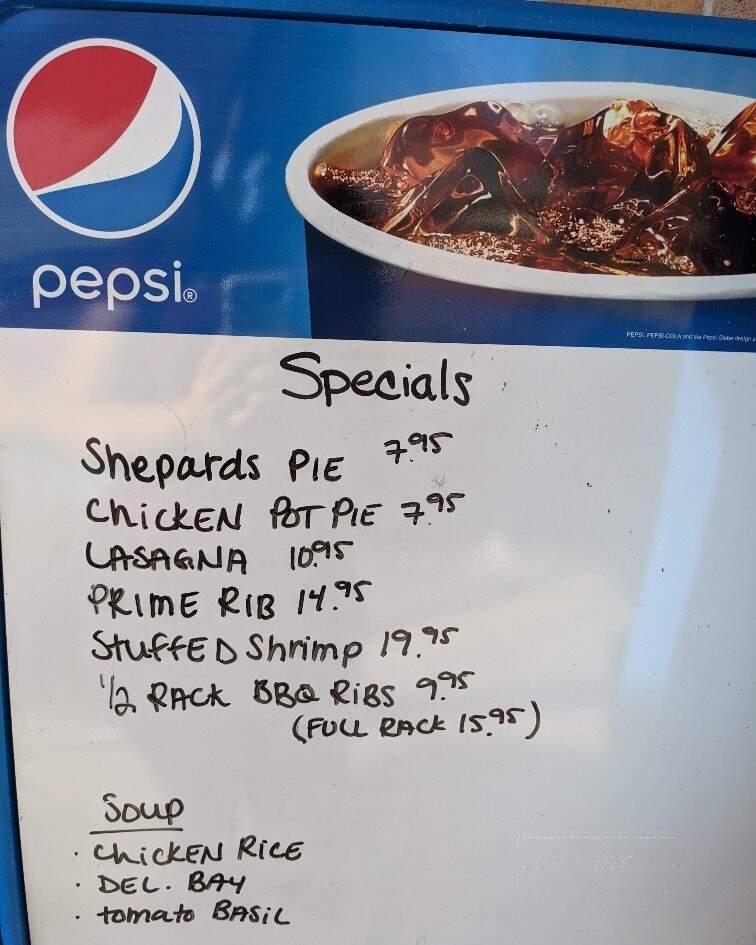 pepsi®
PEPSI, PEPSI-COLA and the Pepsi Globe design
Specials
Shepards PIE 7.95
CHICKEN POT PIE 7.95
LASAGNA 10.95
PRIME RIB 14.95
STUFFED Shrimp 19.95
1/2 RACK BBQ RIBS 9.95
(FULL RACK 15.95)
Soup
· CHICKEN RICE
· DEL. BAY
· tomato BASIL